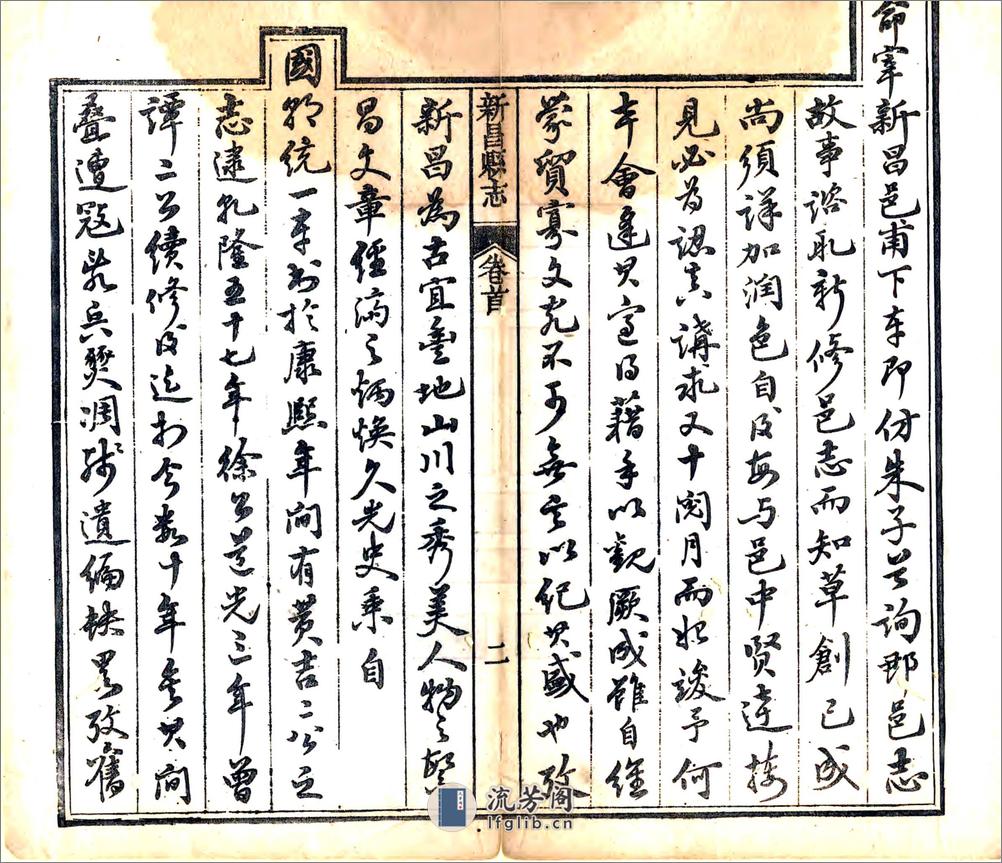 命宰新昌邑甫下車即仿朱子首詢郡邑志
故事諮取新修邑志而知草創已成
尚須詳加润色自後每与邑中贤達接
見必为認真講求又十閱月而始竣予何
幸會逢其適得藉手以觀厥成雖自维
蒙質寡文究不可無言以纪其盛也攷
新昌縣志
卷首
二
新昌為古宜豐地山川之秀美人物之賢
昌文章經濟之炳焕久光史乘自
國朝統一車書於康熙年间有黄吉二公之
志逮乾隆五十七年徐公道光三年曾
譚二公續修後迄于今数十年矣其间
叠遭寇氛兵燹凋殘遺编缺略攷舊
流芳阁
lfglib.cn